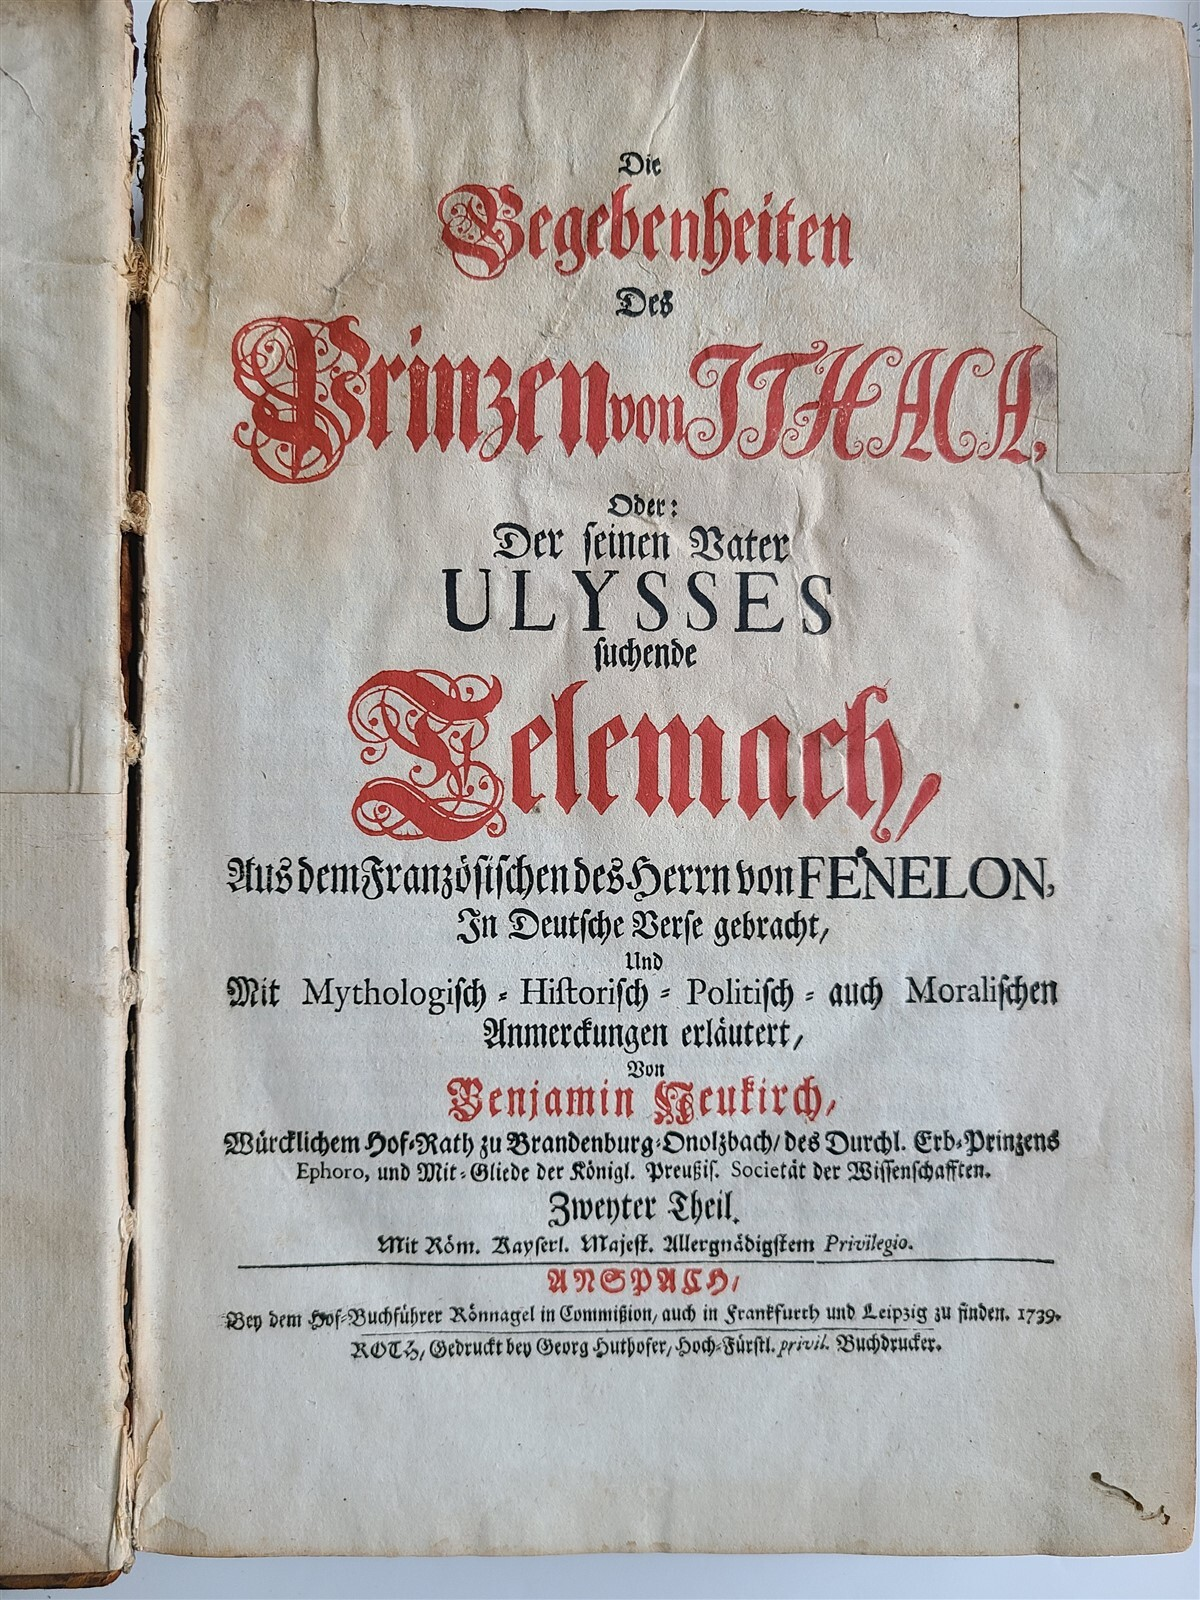 Die
Begebenheiten
Des
Prinzen von ITHACA,
Oder:
Der seinen Vater
ULYSSES
suchende
Telemach,
Aus dem Französischen des Herrn von FÉNELON,
In Deutsche Verse gebracht,
Und
Mit Mythologisch- Historisch- Politisch- auch Moralischen
Anmerckungen erläutert,
Von
Benjamin Neukirch,
Würcklichem Hof-Rath zu Brandenburg-Onolzbach, des Durchl. Erb-Prinzens
Ephoro, und Mit-Gliede der Königl. Preußis. Societät der Wissenschafften.
Zweyter Theil.
Mit Röm. Kayserl. Majest. Allergnädigstem Privilegio.
ANSPACH,
Bey dem Hof-Buchführer Rönnagel in Commißion, auch in Franckfurth und Leipzig zu finden. 1739.
ROTH, Gedruckt bey Georg Huthofer, Hoch-Fürstl. privil. Buchdrucker.